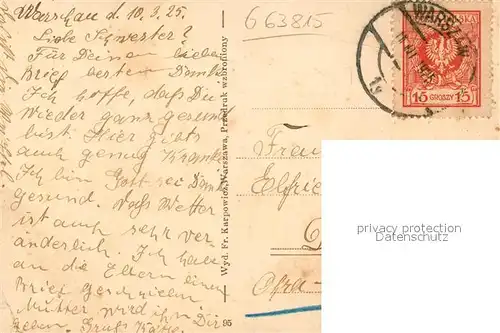 Warschau d. 10.3.25.
Liebe Schwester!
Für Deinen lieben
Brief besten Dank.
Ich hoffe, daß Du
wieder ganz gesund
bist. Hier gibts
auch genug Kranke
Ich bin Gott sei Dank
gesund. Das Wetter
ist auch sehr ver-
änderlich. Ich habe
an die Eltern einen
Brief geschrieben
Mutter wird ihn Dir
geben. Gruß
Wyd. Fr. Karpowicz, Warszawa, Przedruk wzbroniony
95
G 63815
WARSZAWA
15 GROSZY 15
Frau
Elfrie
privacy protection
Datenschutz